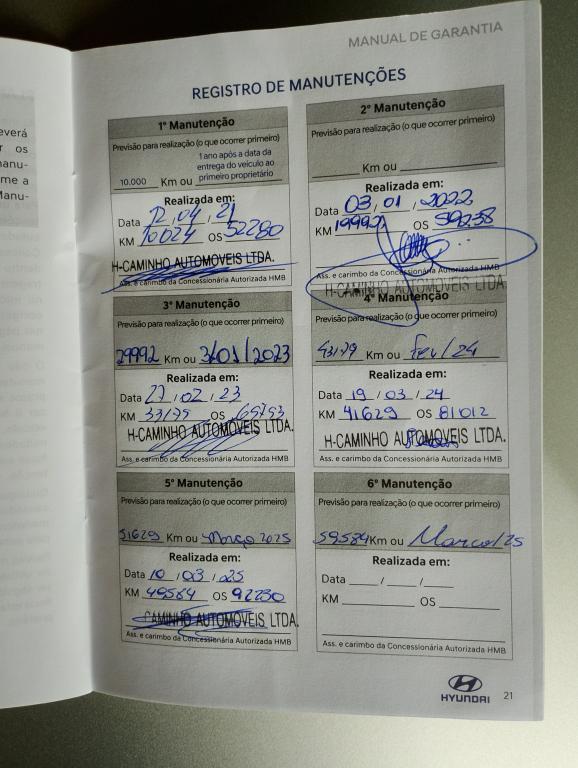 MANUAL DE GARANTIA
REGISTRO DE MANUTENÇÕES
1º Manutenção
Previsão para realização (o que ocorrer primeiro)
10.000 Km ou 1 ano após a data da
entrega do veículo ao
primeiro proprietário
Realizada em:
Data 12 / 04 / 21
KM 10024 OS 52280
H-CAMINHO AUTOMOVEIS LTDA.
Ass. e carimbo da Concessionária Autorizada HMB
2º Manutenção
Previsão para realização (o que ocorrer primeiro)
Km ou
Realizada em:
Data 03 / 01 / 2022
KM 19992 OS 59258
Ass. e carimbo da Concessionária Autorizada HMB
H-CAMINHO AUTOMOVEIS LTDA.
3º Manutenção
Previsão para realização (o que ocorrer primeiro)
29992 Km ou 3/01/2023
Realizada em:
Data 27 / 02 / 23
KM 33179 OS 69793
H-CAMINHO AUTOMOVEIS LTDA.
Ass. e carimbo da Concessionária Autorizada HMB
4º Manutenção
Previsão para realização (o que ocorrer primeiro)
43179 Km ou fev/24
Realizada em:
Data 19 / 03 / 24
KM 41629 OS 81012
H-CAMINHO AUTOMOVEIS LTDA.
Ass. e carimbo da Concessionária Autorizada HMB
5º Manutenção
Previsão para realização (o que ocorrer primeiro)
51629 Km ou março 2025
Realizada em:
Data 10 / 03 / 25
KM 49584 OS 92230
CAMINHO AUTOMOVEIS LTDA.
Ass. e carimbo da Concessionária Autorizada HMB
6º Manutenção
Previsão para realização (o que ocorrer primeiro)
59584 Km ou Marco/25
Realizada em:
Data / /
KM OS
Ass. e carimbo da Concessionária Autorizada HMB
HYUNDAI
21